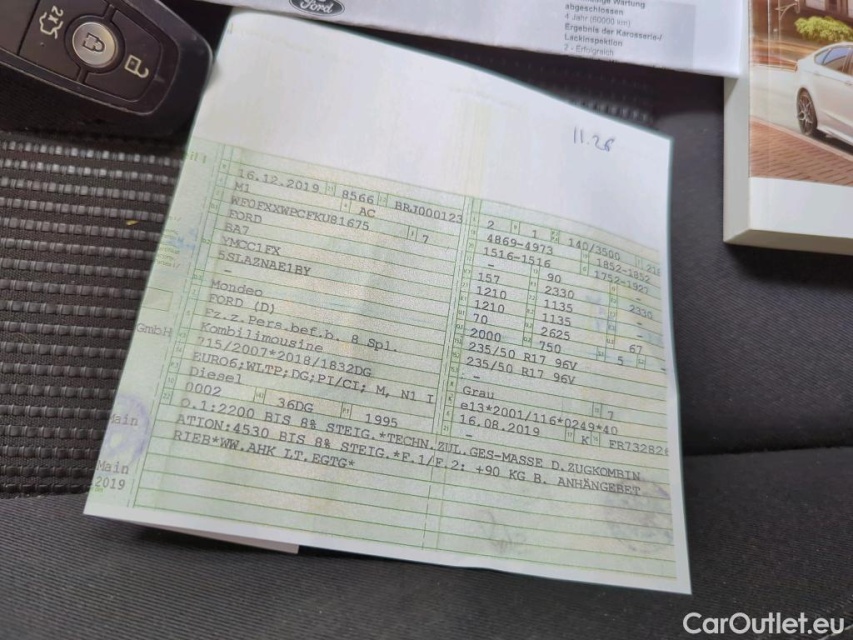 2x
Ford
abgeschlossen
4 Jahr (60000 km)
Ergebnis der Karosserie-/
Lackinspektion
2 - Erfolgreich
11.26
16.12.2019 8566 BRJ000123
M1 AC
WF0FXXWPCFKU81675 7
FORD
BA7
YMCC1FX
5SLAZNAE1BY
-
Mondeo
FORD (D)
Fz.z.Pers.bef.b. 8 Spl.
Kombilimousine
715/2007*2018/1832DG
EURO6;WLTP;DG;PI/CI; M, N1 I
Diesel
0002 36DG 1995
2 1 140/3500
4869-4973 1852-1852
1516-1516 1752-1927
- 90 -
157 2330 2330
1210 1135 -
1210 1135
70 2625 67
2000 750 5
235/50 R17 96V
235/50 R17 96V
-
-
Grau 7
e13*2001/116*0249*40
16.08.2019 K FR73282
-
O.1:2200 BIS 8% STEIG.*TECHN.ZUL.GES-MASSE D.ZUGKOMBIN
ATION:4530 BIS 8% STEIG.*F.1/F.2: +90 KG B. ANHÄNGEBET
RIEB*WW.AHK LT.EGTG*
GmbH
Main
Main
2019
CarOutlet.eu